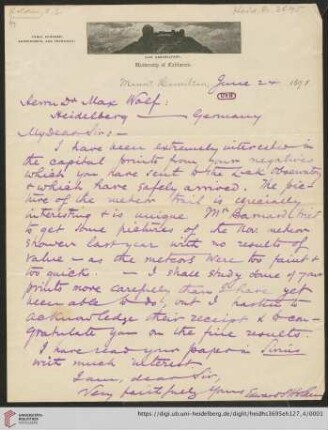 Heid. Hs. 3695
LICK OBSERVATORY,
University of California.
Mount Hamilton, June 24 1891
Herrn Dr Max Wolf:
Heidelberg — Germany
My Dear Sir: —
I have been extremely interested in
the capital prints from your negatives
which you have sent to the Lick Observatory
& which have safely arrived. The pic-
ture of the meteor trail is especially
interesting & is unique. Mr Barnard tried
to get some pictures of the Nov. meteor
shower last year with no results of
value — as the meteors were too faint &
too quick. — I shall study some of your
prints more carefully than I have yet
been able to do, but I hasten to
acknowledge their receipt & to con-
gratulate you on the fine results.
I have read your paper in Sirius
with much interest
I am, dear Sir,
Very faithfully Yours
https://digi.ub.uni-heidelberg.de/diglit/heidhs3695eh127_4/0001
UNIVERSITÄTS-
BIBLIOTHEK
HEIDELBERG